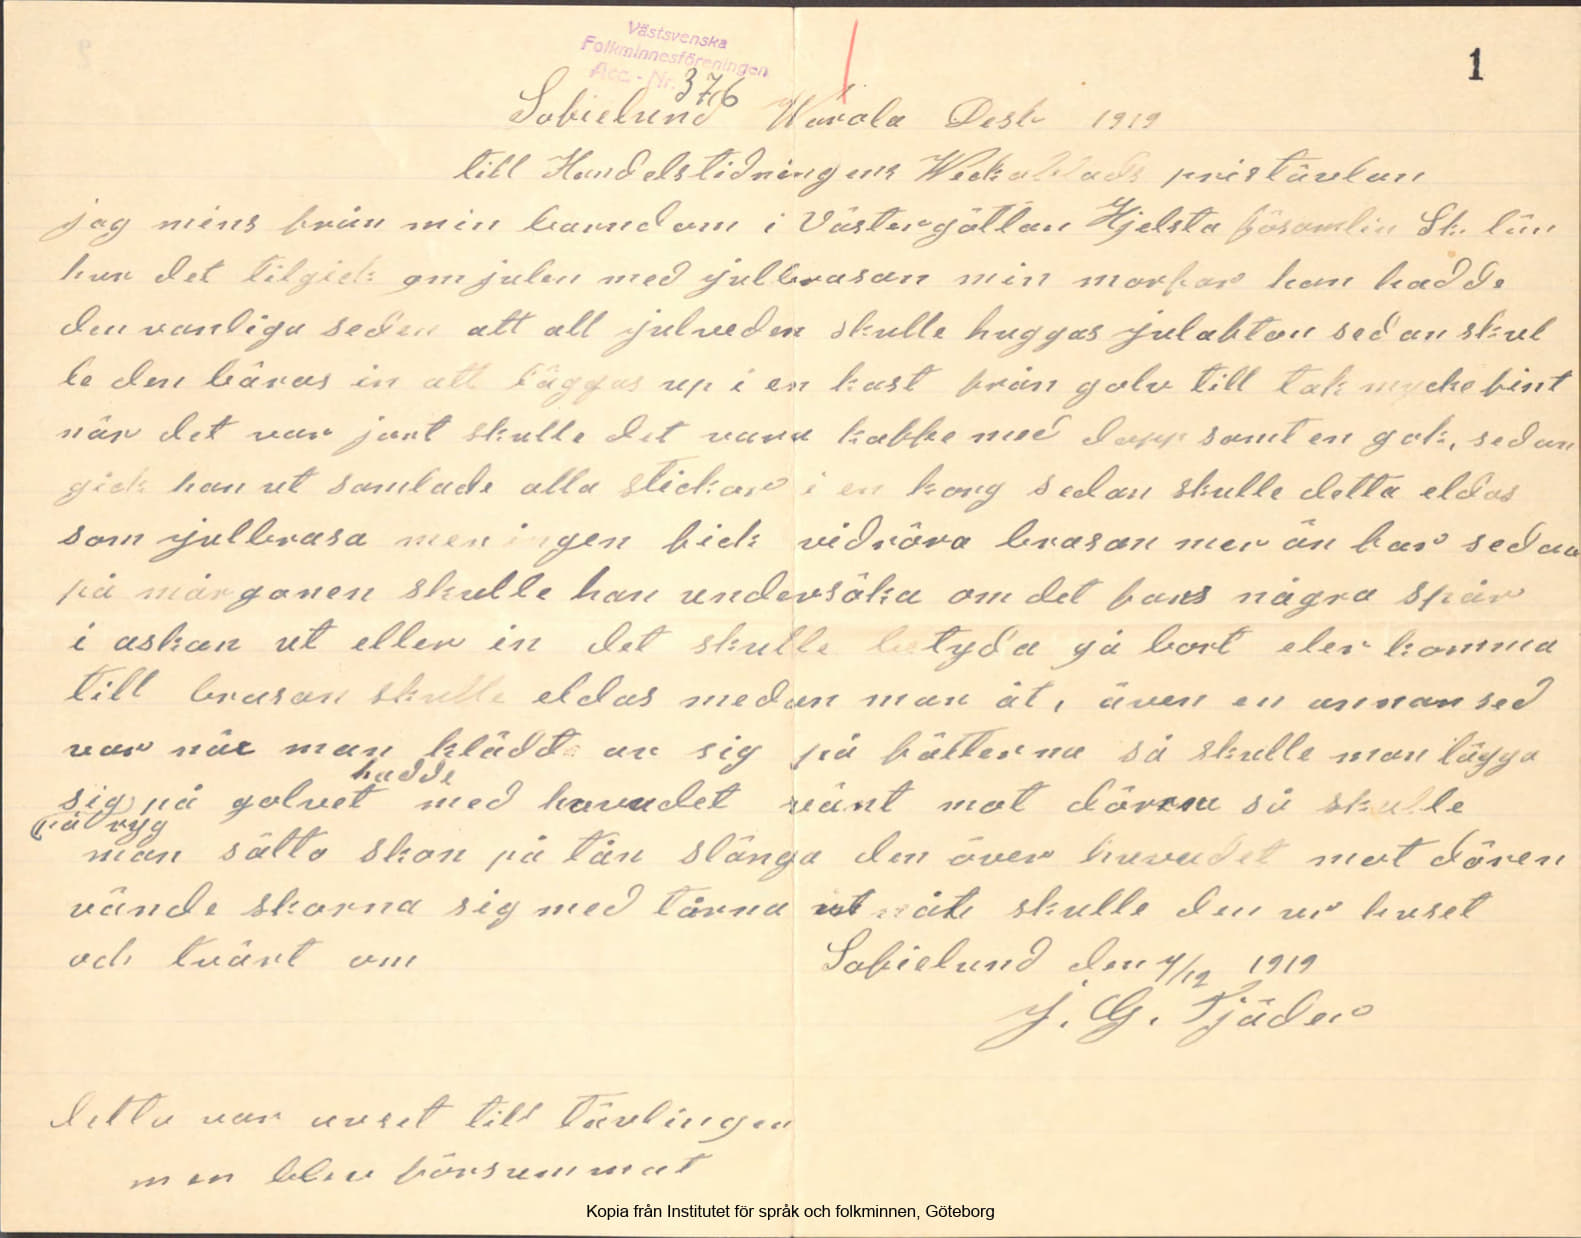 Västsvenska
Folkminnesföreningen
Acc. - Nr. 376
1
Sofielund Warola Desb 1919
till Handelstidningens Weckoblads pristävlan
jag mins från min barndom i Västergötlan Hjelsta församlin Sk. län
hur det tilgick om julen med julbrasan min morfar han hadde
den vanliga seden att all julveden skulle huggas julafton sedan skul
le den bäras in att läggas up i en kast från golv till tak mycke fint
när det var jort skulle det vara kaffe med dopp samt en gök, sedan
gick han ut samlade alla stickor i en korg sedan skulle detta eldas
som julbrasa men ingen fick vidröra brasan mer än far sedan
på mårgonen skulle han undersöka om det fans några spår
i askan ut eller in det skulle betyda gå bort eler komma
till brasan skulle eldas medan man åt, även en annan sed
var när man klädde av sig på fötterna så skulle man lägga
sig på golvet hadde med huvudet vänt mot dörren så skulle
(på ryg
man sätta skon på tån slänga den över huvudet mot dören
vände skorna sig med tårna ut åt skulle den ur huset
och tvärt om
Sofielund den 4/12 1919
J. G. Tjäder
detta var avset till tävlingen
men blev försummat
Kopia från Institutet för språk och folkminnen, Göteborg